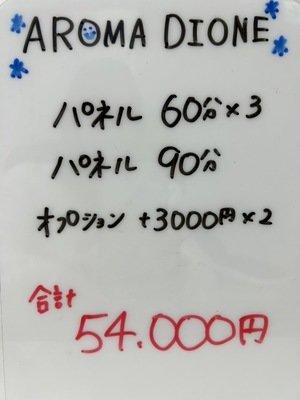 AROMA DIONE
パネル 60分×3
パネル 90分
オプション +3000円×2
合計
54.000円